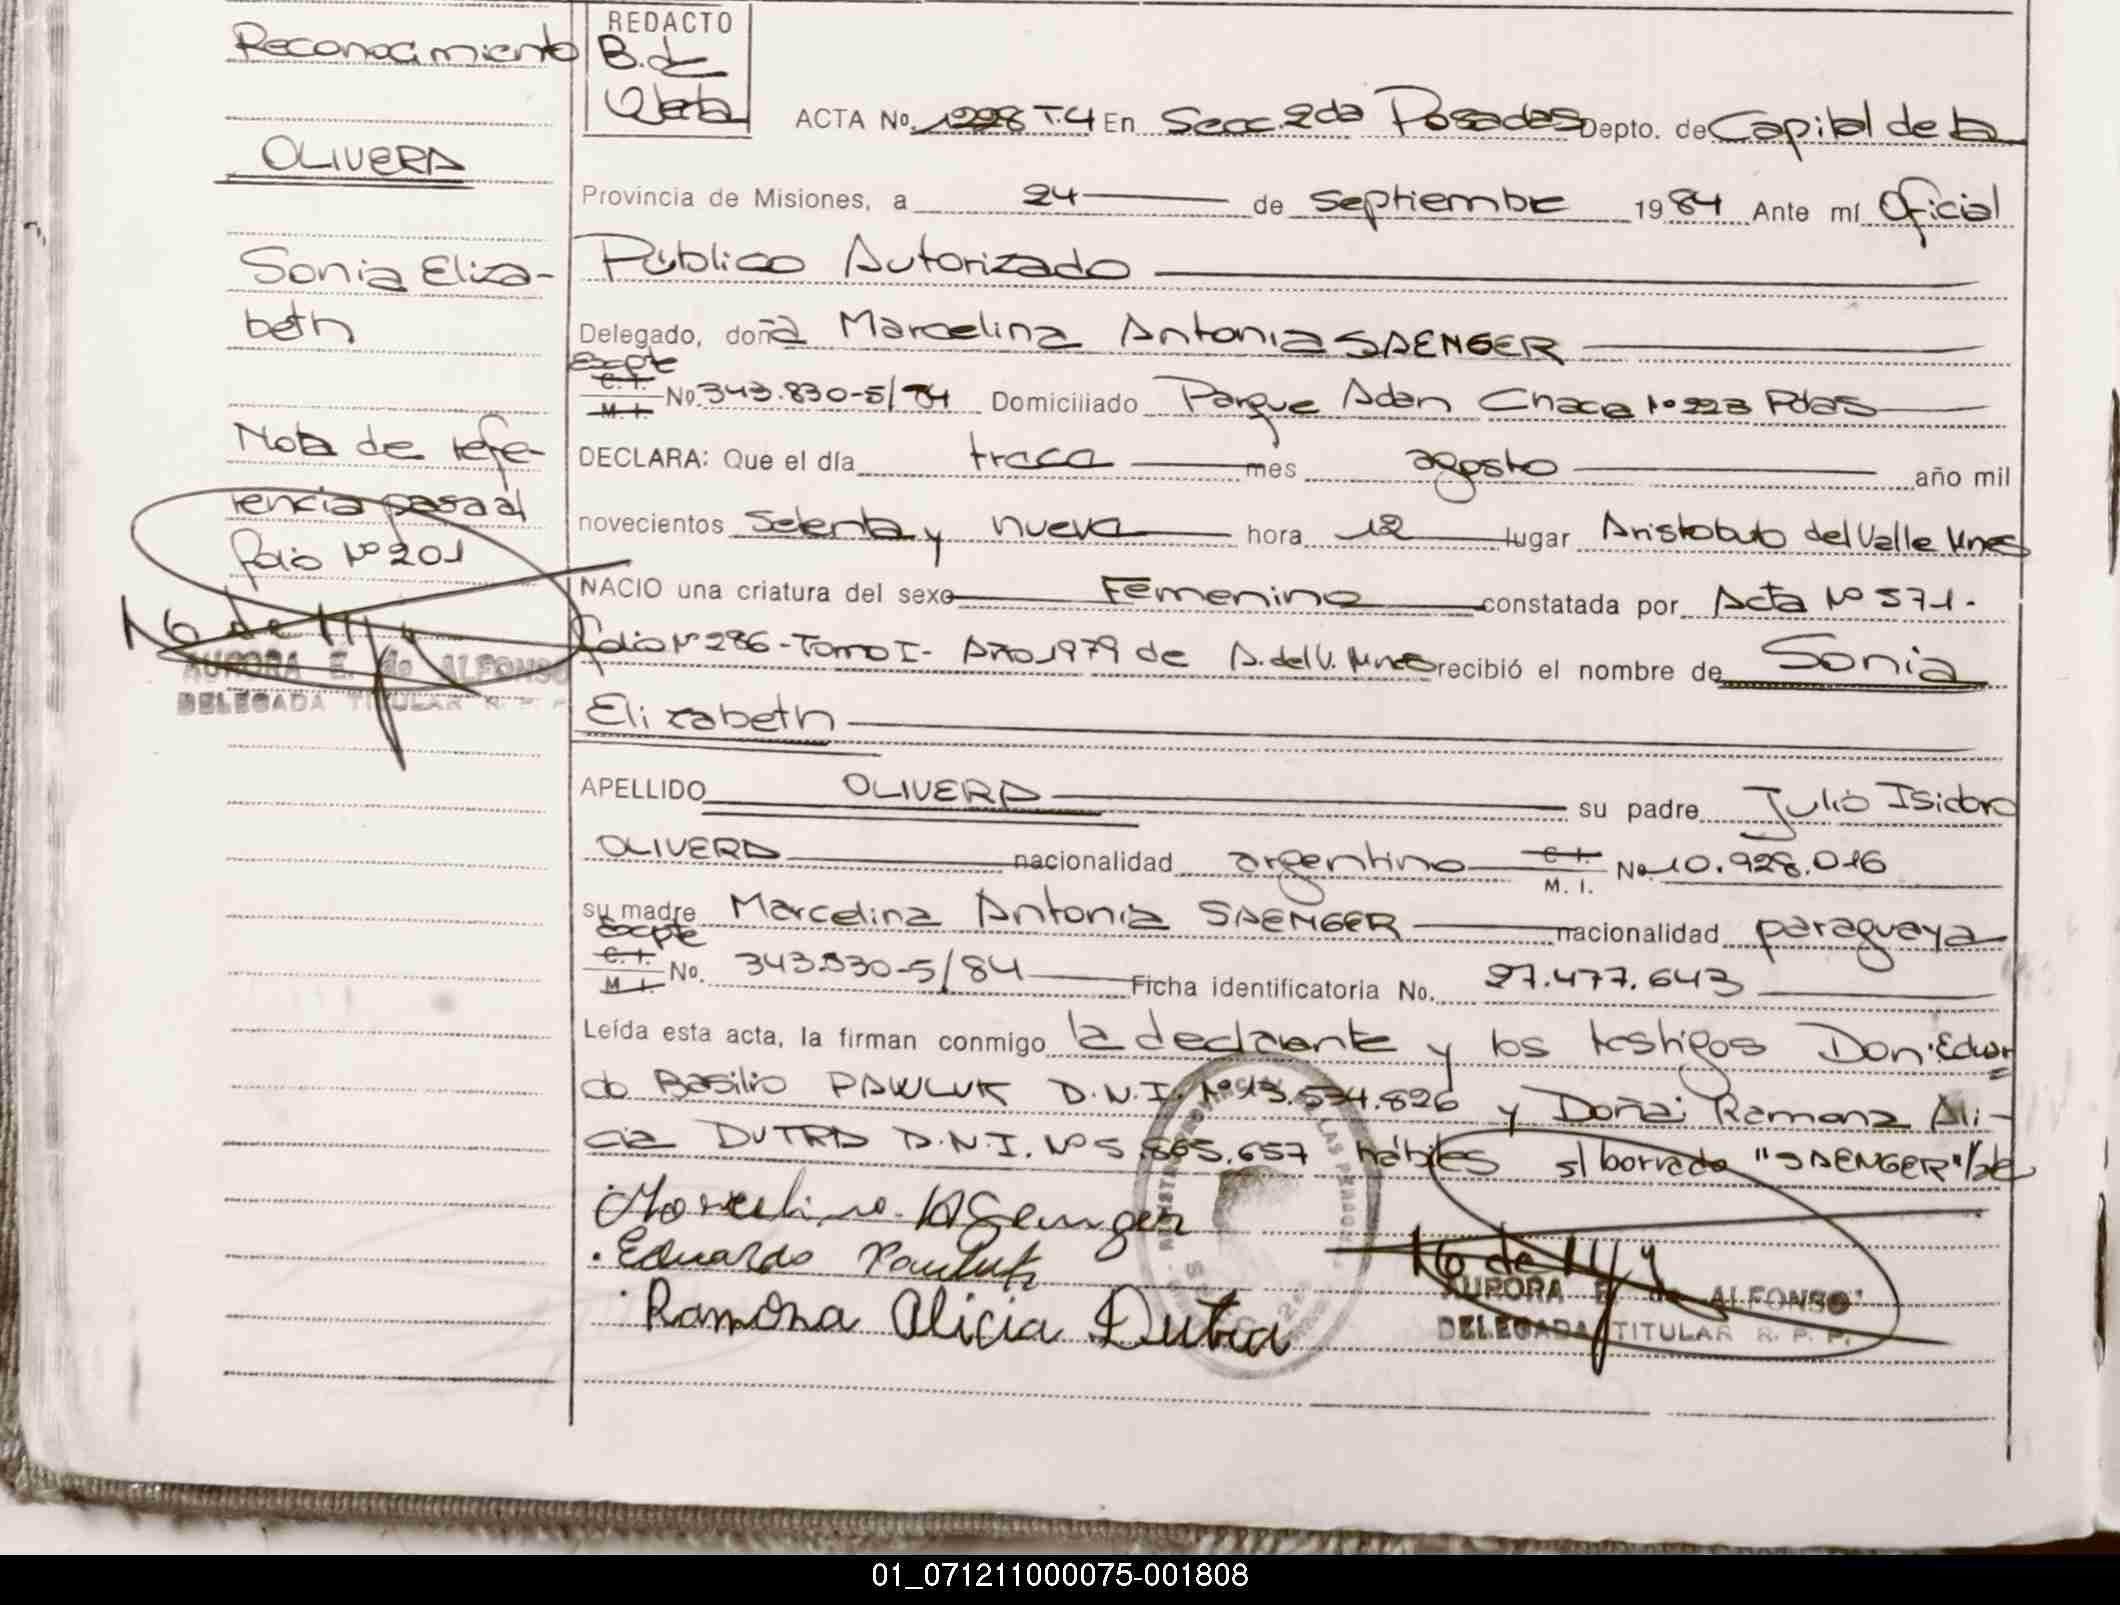 Reconocimiento
OLIVERA
Sonia Eliza-
beth
Nota de refe-
rencia pasa al
folio Nº 201
AURORA E. de ALFONSO
DELEGADA TITULAR R. P. P.
REDACTO
B. de
ACTA No. 1228 T.4 En Secc. 2da Posadas Depto. de Capital de la
Provincia de Misiones, a 24 de septiembre 1984 Ante mí Oficial
Público Autorizado
Delegado, doña Marcelina Antonia SAENGER
Expte
C. I.
M. I. No. 343.830-5/84 Domiciliado Parque Adan Chaca Nº 223 Pdas
DECLARA: Que el día trece mes agosto año mil
novecientos setenta y nueve hora 12 lugar Aristobulo del Valle Mnes
NACIO una criatura del sexo Femenino constatada por Acta Nº 571.
folio Nº 286 - Tomo I - Año 1979 de A. del V. Mnes recibió el nombre de Sonia
Elizabeth
APELLIDO OLIVERA su padre Julio Isidoro
OLIVERA nacionalidad argentino C. I.
M. I. No. 10.928.016
su madre Marcelina Antonia SAENGER nacionalidad paraguaya
Expte
C. I.
M. I. No. 343.830-5/84 Ficha identificatoria No. 27.477.643
Leída esta acta, la firman conmigo la declarante y los testigos Don: Eduar
do Basilio PAWLUK D.N.I. Nº 13.534.826 y Doña: Ramona Ali-
cia DUTRA D.N.I. Nº 5.865.657 hábiles s/ borrado "SAENGER"
Marcelina A Saenger
Eduardo Pawluk
Ramona Alicia Dutra
AURORA E. de ALFONSO
DELEGADA TITULAR R. P. P.
01_071211000075-001808